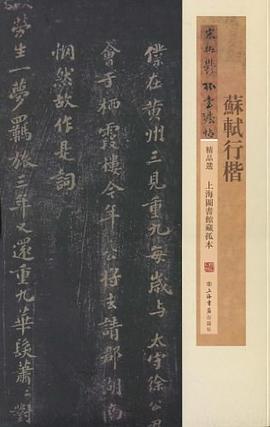 蘇軾行楷
宋拓鬱孤臺法帖
精品選 上海圖書館藏孤本
僕在黃州三見重九每歲與太守徐公君
會于栖霞樓今年公將去請郡湖南
惘然故作是詞
勞生一夢羈旅三年又還重九華髮蕭〻對